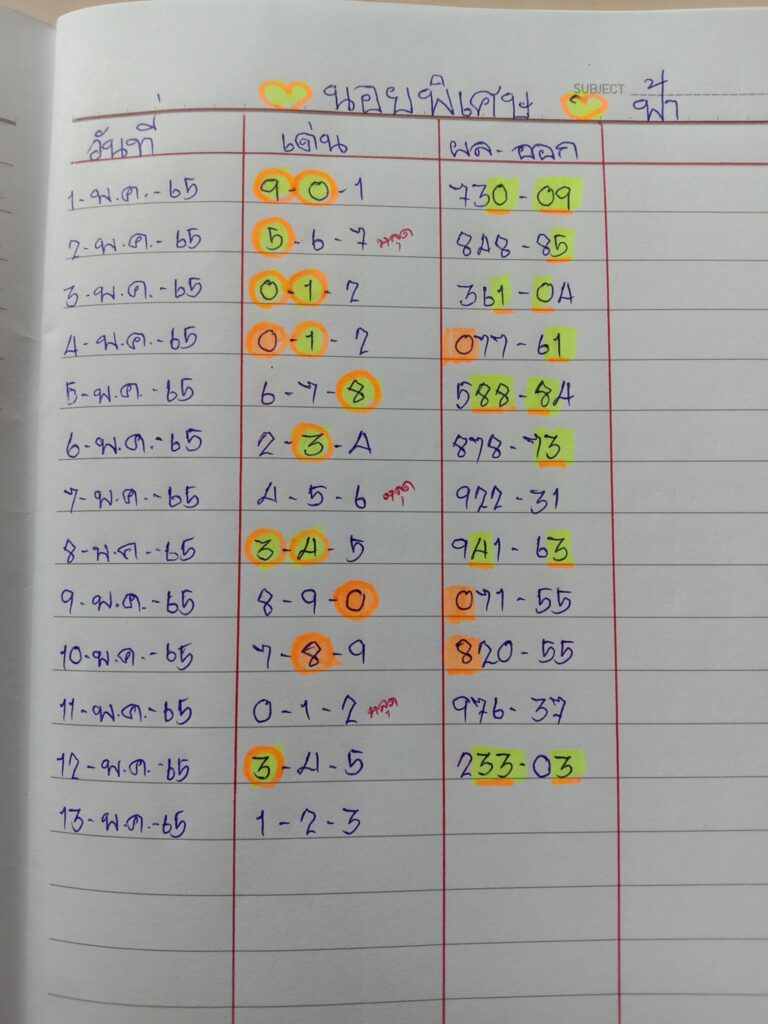 SUBJECT
นอยพิเศษ ฟ้า
วันที่ เด่น ผล-ออก
1-พ.ค.-65 9-0-1 730-09
2-พ.ค.-65 5-6-7 หลุด 848-85
3-พ.ค.-65 0-1-2 361-04
4-พ.ค.-65 0-1-2 077-61
5-พ.ค.-65 6-7-8 588-84
6-พ.ค.-65 2-3-4 878-73
7-พ.ค.-65 4-5-6 หลุด 922-31
8-พ.ค.-65 3-4-5 941-63
9-พ.ค.-65 8-9-0 071-55
10-พ.ค.-65 7-8-9 820-55
11-พ.ค.-65 0-1-2 หลุด 976-37
12-พ.ค.-65 3-4-5 233-03
13-พ.ค.-65 1-2-3